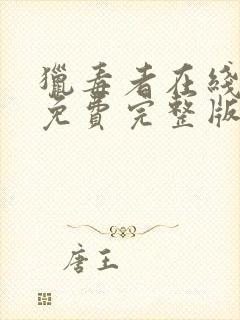 獵毒者在綫
免費完整版
唐王